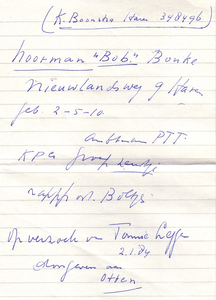 (K. Boonstra Haren 348496)
Noorman "Bob" Bonke
Nieuwlandsweg 9 Haren
geb. 2-5-10.
Ambtenaar PTT.
KPG Groep
rapp. v.
op verzoek v. Tonnie
2.1.84
doorgeven aan
Otten